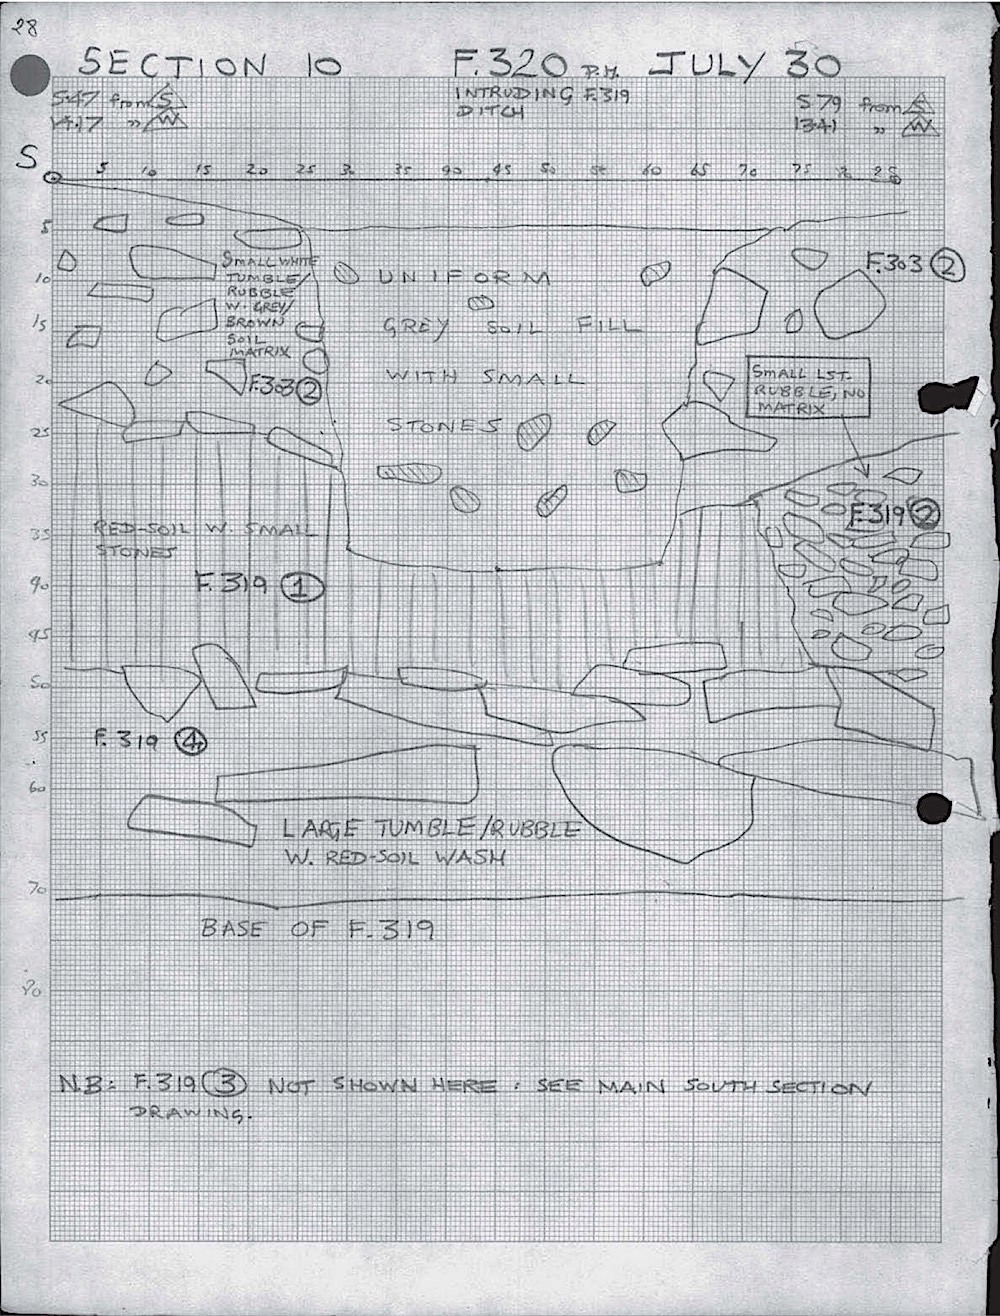 28
SECTION 10 F.320 P.M. JULY 30
INTRUDING F.319
DITCH
from S
" W
5.79 from S
13.41 " W
S
5 10 15 20 25 30 35 40 45 50 55 60 65 70 75
5
10
15
20
25
30
35
40
45
50
55
60
70
80
SMALL WHITE
TUMBLE/
RUBBLE
W. GREY/
BROWN
SOIL
MATRIX
F.303 2
UNIFORM
GREY SOIL FILL
WITH SMALL
STONES
F.303 2
SMALL LST.
RUBBLE, NO
MATRIX
F.319 2
RED-SOIL W. SMALL
STONES
F.319 1
F.319 4
LARGE TUMBLE/RUBBLE
W. RED-SOIL WASH
BASE OF F.319
N.B: F.319 3 NOT SHOWN HERE: SEE MAIN SOUTH SECTION
DRAWING.